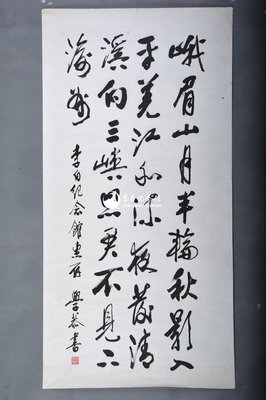 峨眉山月半輪秋影入
平羌江水流夜發清
溪向三峽思君不見下
渝州
李白纪念館惠存 學恭書